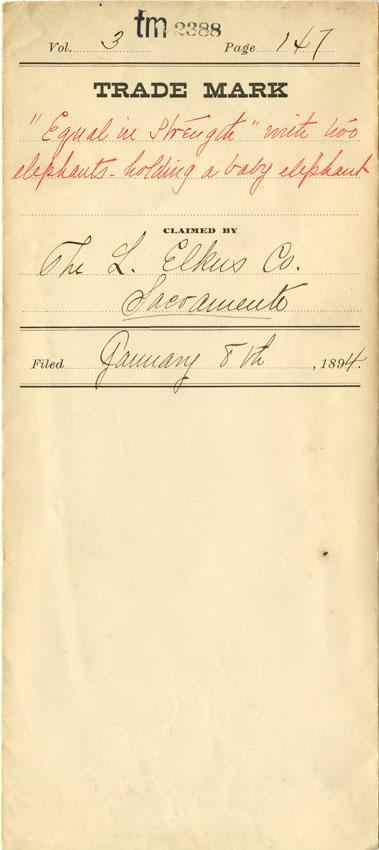 tm 2388
Vol. 3 Page 147
TRADE MARK
"Equal in Strength" with two
elephants - holding a baby elephant
CLAIMED BY
The L. Elkus Co.
Sacramento
Filed January 8th, 1894.